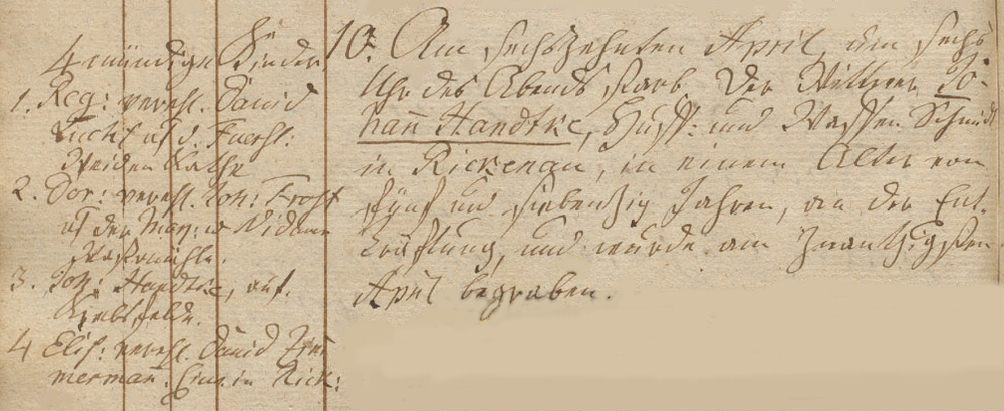 4 mündige Kinder
1. Reg: verehl. David
Lucht auf d. Fürstl:
Weiden Kathe
2. Dor: verehl. Joh: Frost
auf der
3. Joh: Handtke, auf
Krebsfelde.
4 Elis: verehl. David Zim
merman: Einw. in Rick:
10. Am sechszehnten April, um sechs
Uhr des Abends starb der Wittwer Jo-
hann Handtke, Huff- und Waffen Schmidt
in Rickenau, in einem Alter von
fünf und siebenzig Jahren, an der Ent-
kräftung, und wurde am zwantzigsten
April begraben.